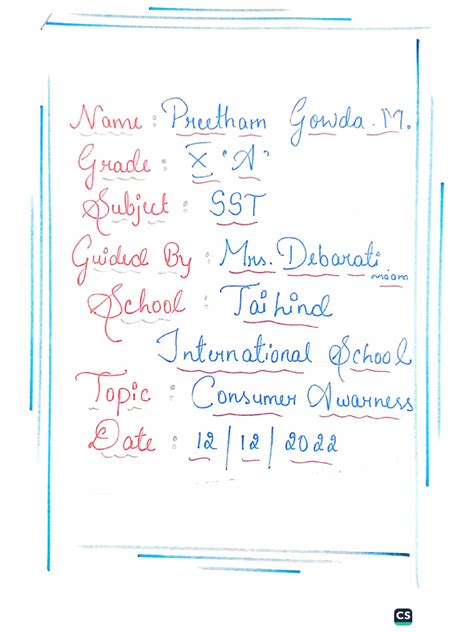 Name : Preetham Gowda .M.
Grade : X "A"
Subject : SST
Guided By : Mrs. Debarati
maam
School : Taihind
International School
Topic : Consumer Awarness
Date : 12/12/2022
CS